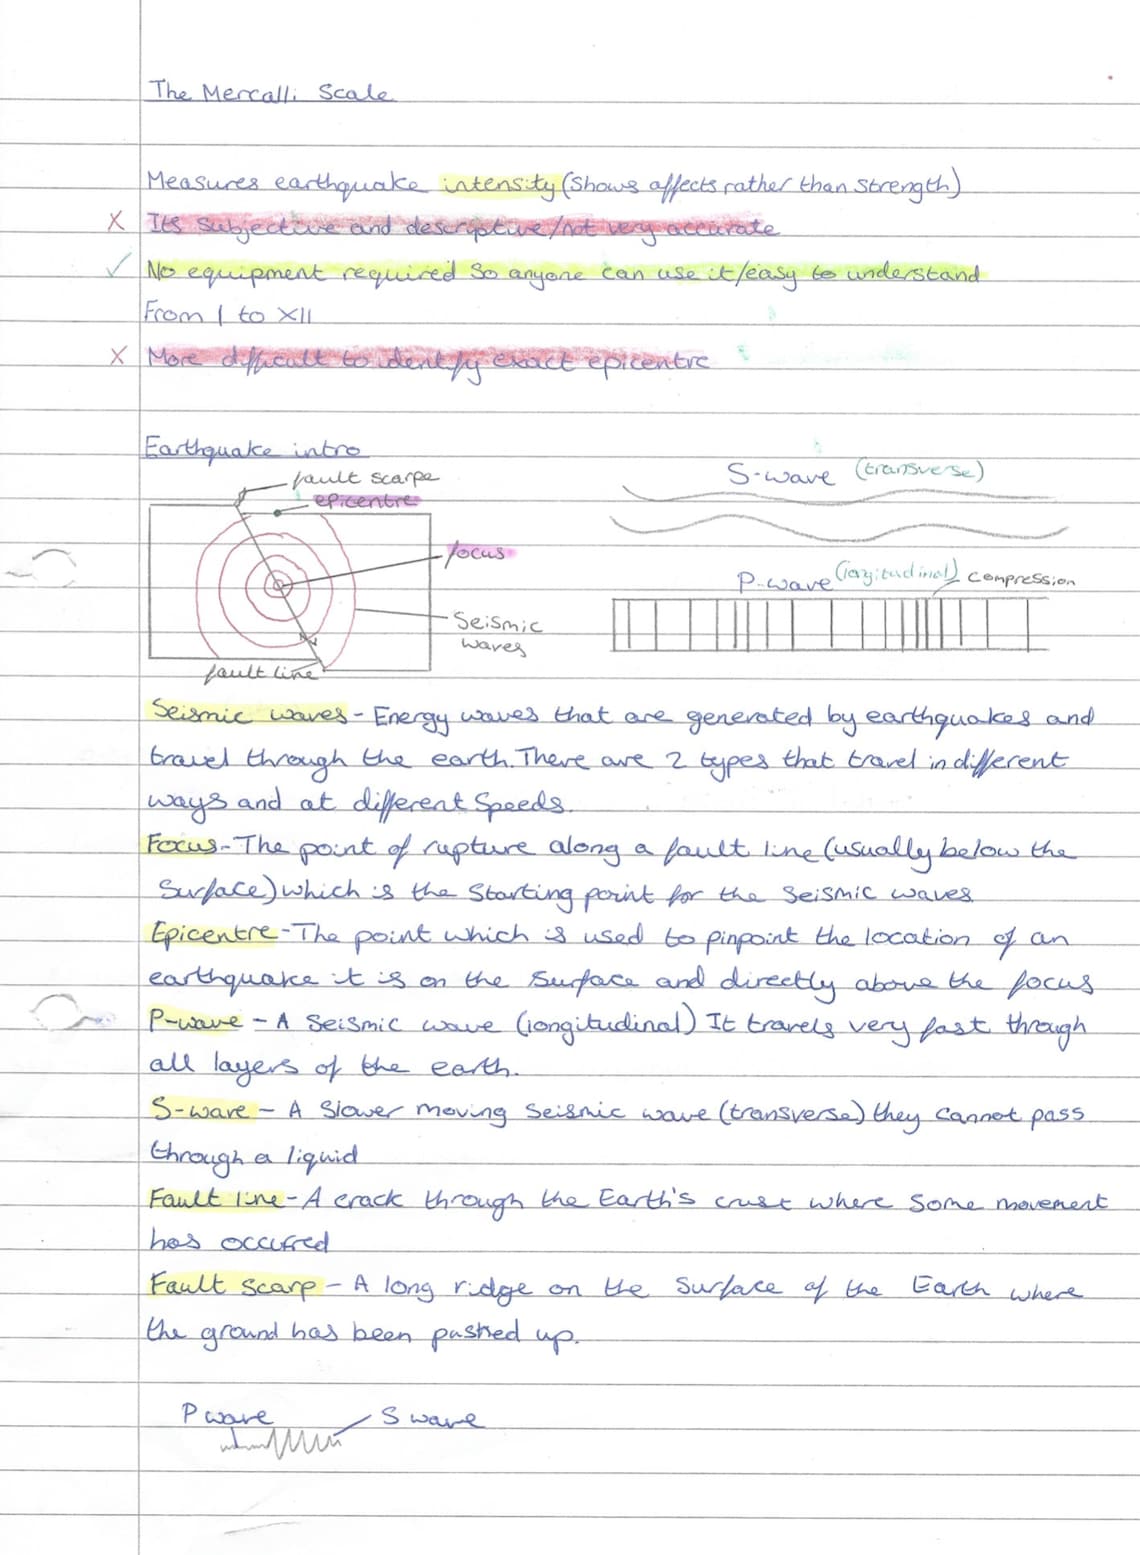 The Mercalli Scale
Measures earthquake intensity (shows affects rather than strength)
X Its subjective and descriptive/not very accurate
✓ No equipment required so anyone can use it/easy to understand
From I to XII
X More difficult to identify exact epicentre
Earthquake intro
fault scarpe
epicentre
focus
Seismic
waves
fault line
S-wave (transverse)
P-wave (longitudinal) compression
Seismic waves - Energy waves that are generated by earthquakes and
travel through the earth. There are 2 types that travel in different
ways and at different speeds.
Focus - The point of rupture along a fault line (usually below the
surface) which is the starting point for the seismic waves
Epicentre - The point which is used to pinpoint the location of an
earthquake it is on the surface and directly above the focus
P-wave - A seismic wave (longitudinal) It travels very fast through
all layers of the earth.
S-wave - A slower moving seismic wave (transverse) they cannot pass
through a liquid
Fault line - A crack through the Earth's crust where some movement
has occurred
Fault scarp - A long ridge on the surface of the Earth where
the ground has been pushed up.
P wave S wave